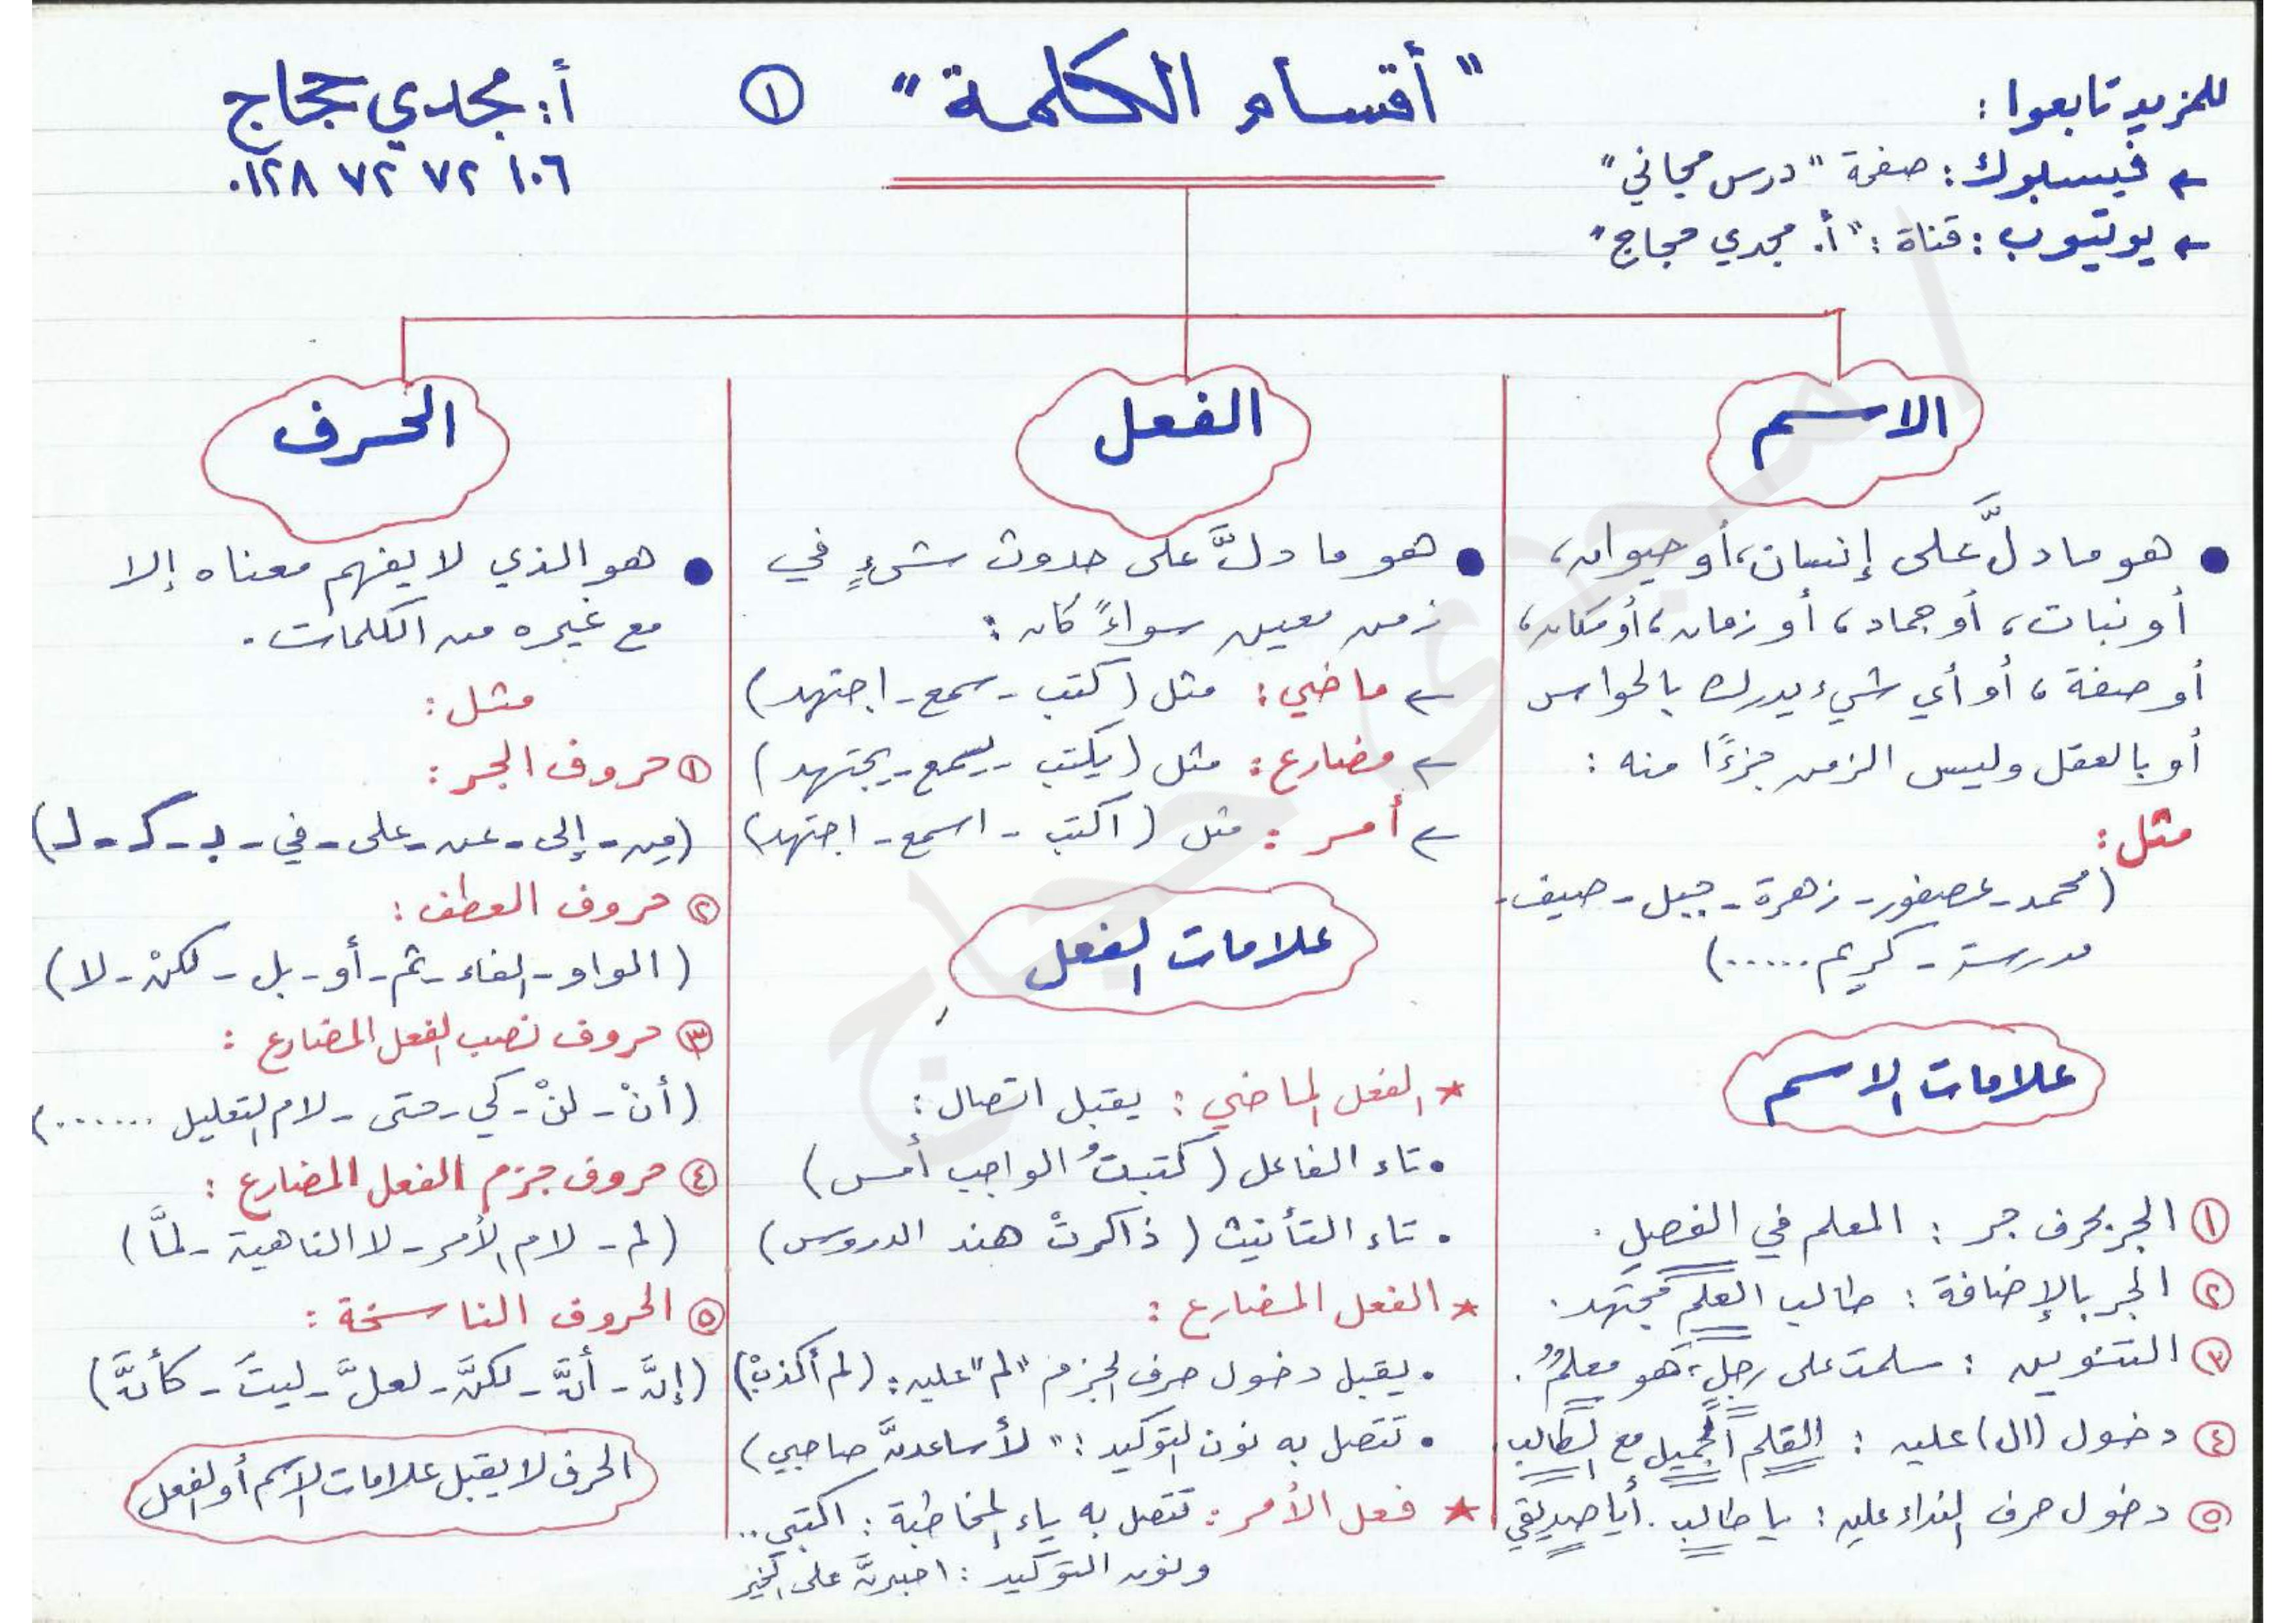 للمزيد تابعوا :
← فيسبوك : صفحة " درس مجاني "
← يوتيوب : قناة : " أ. مجدي حجاج "
" أقسام الكلمة " ①
أ : مجدي حجاج
٠١٢٨ ٧٢ ٧٢ ١٠٦
الاسم
● هو ما دلَّ على إنسان، أو حيوان،
أو نبات، أو جماد، أو زمان، أو مكان،
أو صفة، أو أي شيء يدرك بالحواس
أو بالعقل وليس الزمن جزءًا منه :
مثل :
(محمد - عصفور - زهرة - جبل - صيف -
مدرسة - كريم .....)
علامات الاسم
① الجر بحرف جر : المعلم في الفصلِ .
② الجر بالإضافة : طالب العلمِ مجتهد .
③ التنوين : سلمت على رجلٍ، هو معلمٌ .
④ دخول (ال) عليه : القلم الجميل مع الطالب .
⑤ دخول حرف النداء عليه : يا طالب . أيا صديقي
الفعل
● هو ما دلَّ على حدوث شيءٍ في
زمن معين سواءً كان :
← ماضي : مثل (كتب - سمع - اجتهد)
← مضارع : مثل (يكتب - يسمع - يجتهد)
← أمر : مثل (اكتب - اسمع - اجتهد)
علامات الفعل
★ الفعل الماضي : يقبل اتصال :
• تاء الفاعل (كتبتُ الواجب أمس)
• تاء التأنيث (ذاكرتْ هند الدروس)
★ الفعل المضارع :
• يقبل دخول حرف الجزم "لم" عليه : (لم أكذبْ)
• تتصل به نون التوكيد : " لأساعدنَّ صاحبي)
★ فعل الأمر : تتصل به ياء المخاطبة : اكتبي ..
ونون التوكيد : اصبرنَّ على الخير
الحرف
● هو الذي لا يفهم معناه إلا
مع غيره من الكلمات .
مثل :
① حروف الجر :
(مِن - إلى - عن - على - في - بـ - كـ - لـ)
② حروف العطف :
(الواو - الفاء - ثم - أو - بل - لكنْ - لا)
③ حروف نصب الفعل المضارع :
(أنْ - لنْ - كي - حتى - لام التعليل .......)
④ حروف جزم الفعل المضارع :
(لم - لام الأمر - لا الناهية - لمَّا)
⑤ الحروف الناسخة :
(إنَّ - أنَّ - لكنَّ - لعلَّ - ليتَ - كأنَّ)
الحرف لا يقبل علامات الاسم أو الفعل
أ/ مجدى حجاج